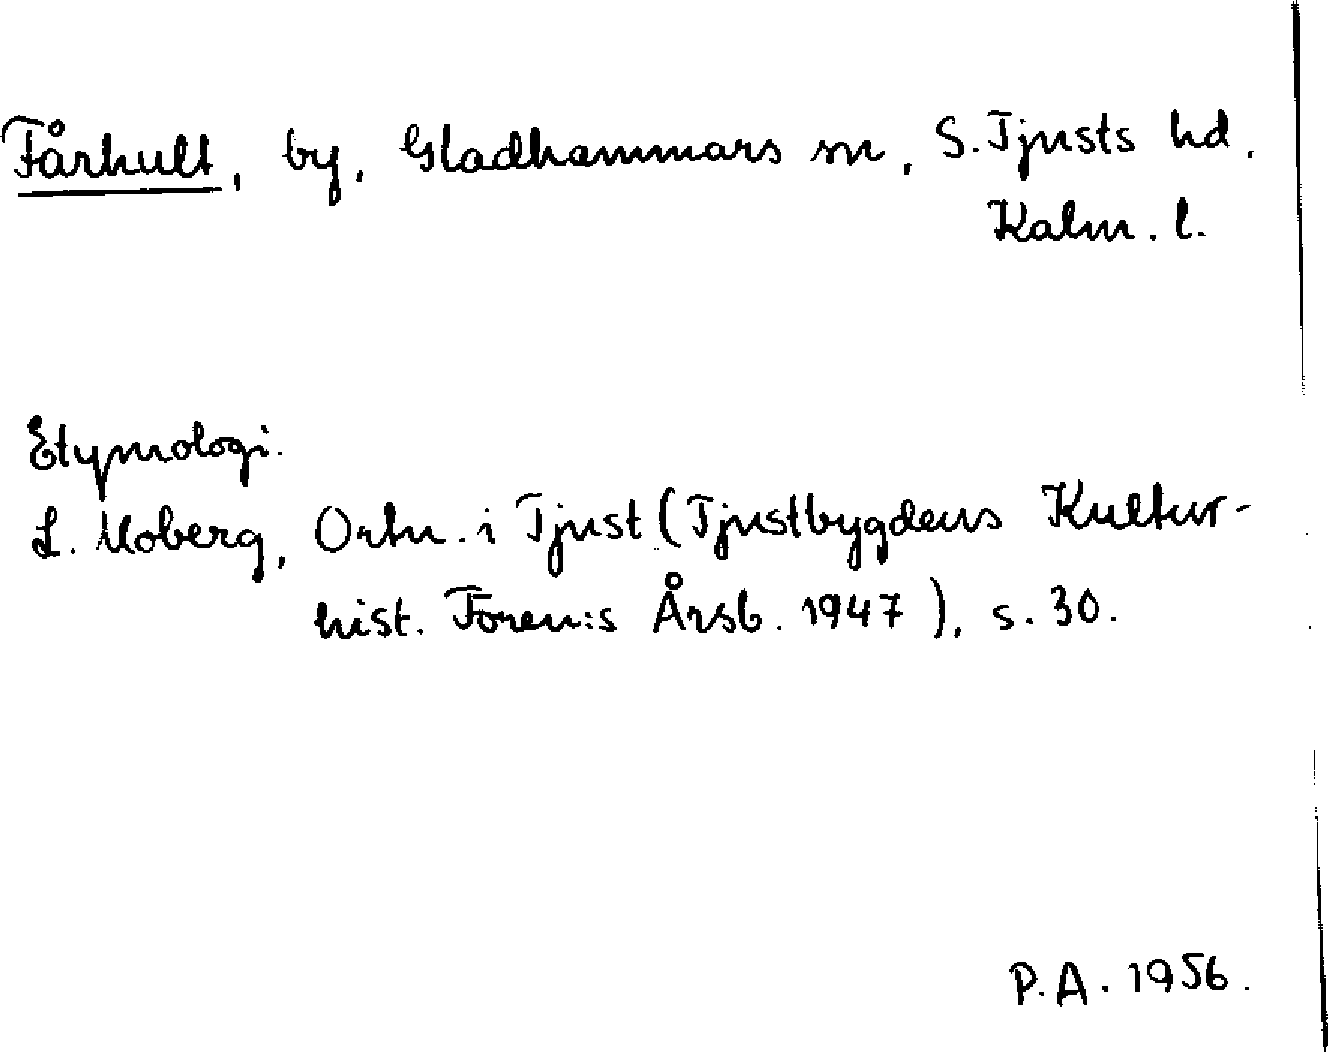 Fårhult, by, Gladhammars sn, S. Tjusts hd.
Kalm. l.
Etymologi.
L. Moberg, Ortn. i Tjust (Tjustbygdens Kultur-
hist. Fören:s Årsb. 1947), s. 30.
P.A. 1956.